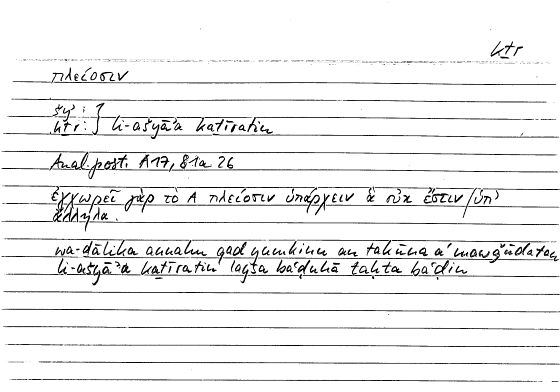 kṯr
πλείοσιν
šyʾ:
kṯr: } li-ašyāʾa kaṯīratin
Anal. post. A 17, 81a 26
ἐγχωρεῖ γὰρ τὸ Α πλείοσιν ὑπάρχειν ἃ οὐκ ἔστιν ὑπ'
ἄλληλα.
wa-ḏālika annahu qad yumkinu an takūna ā mawǧūdatan
li-ašyāʾa kaṯīratin laysa baʿḍuhā taḥta baʿḍin